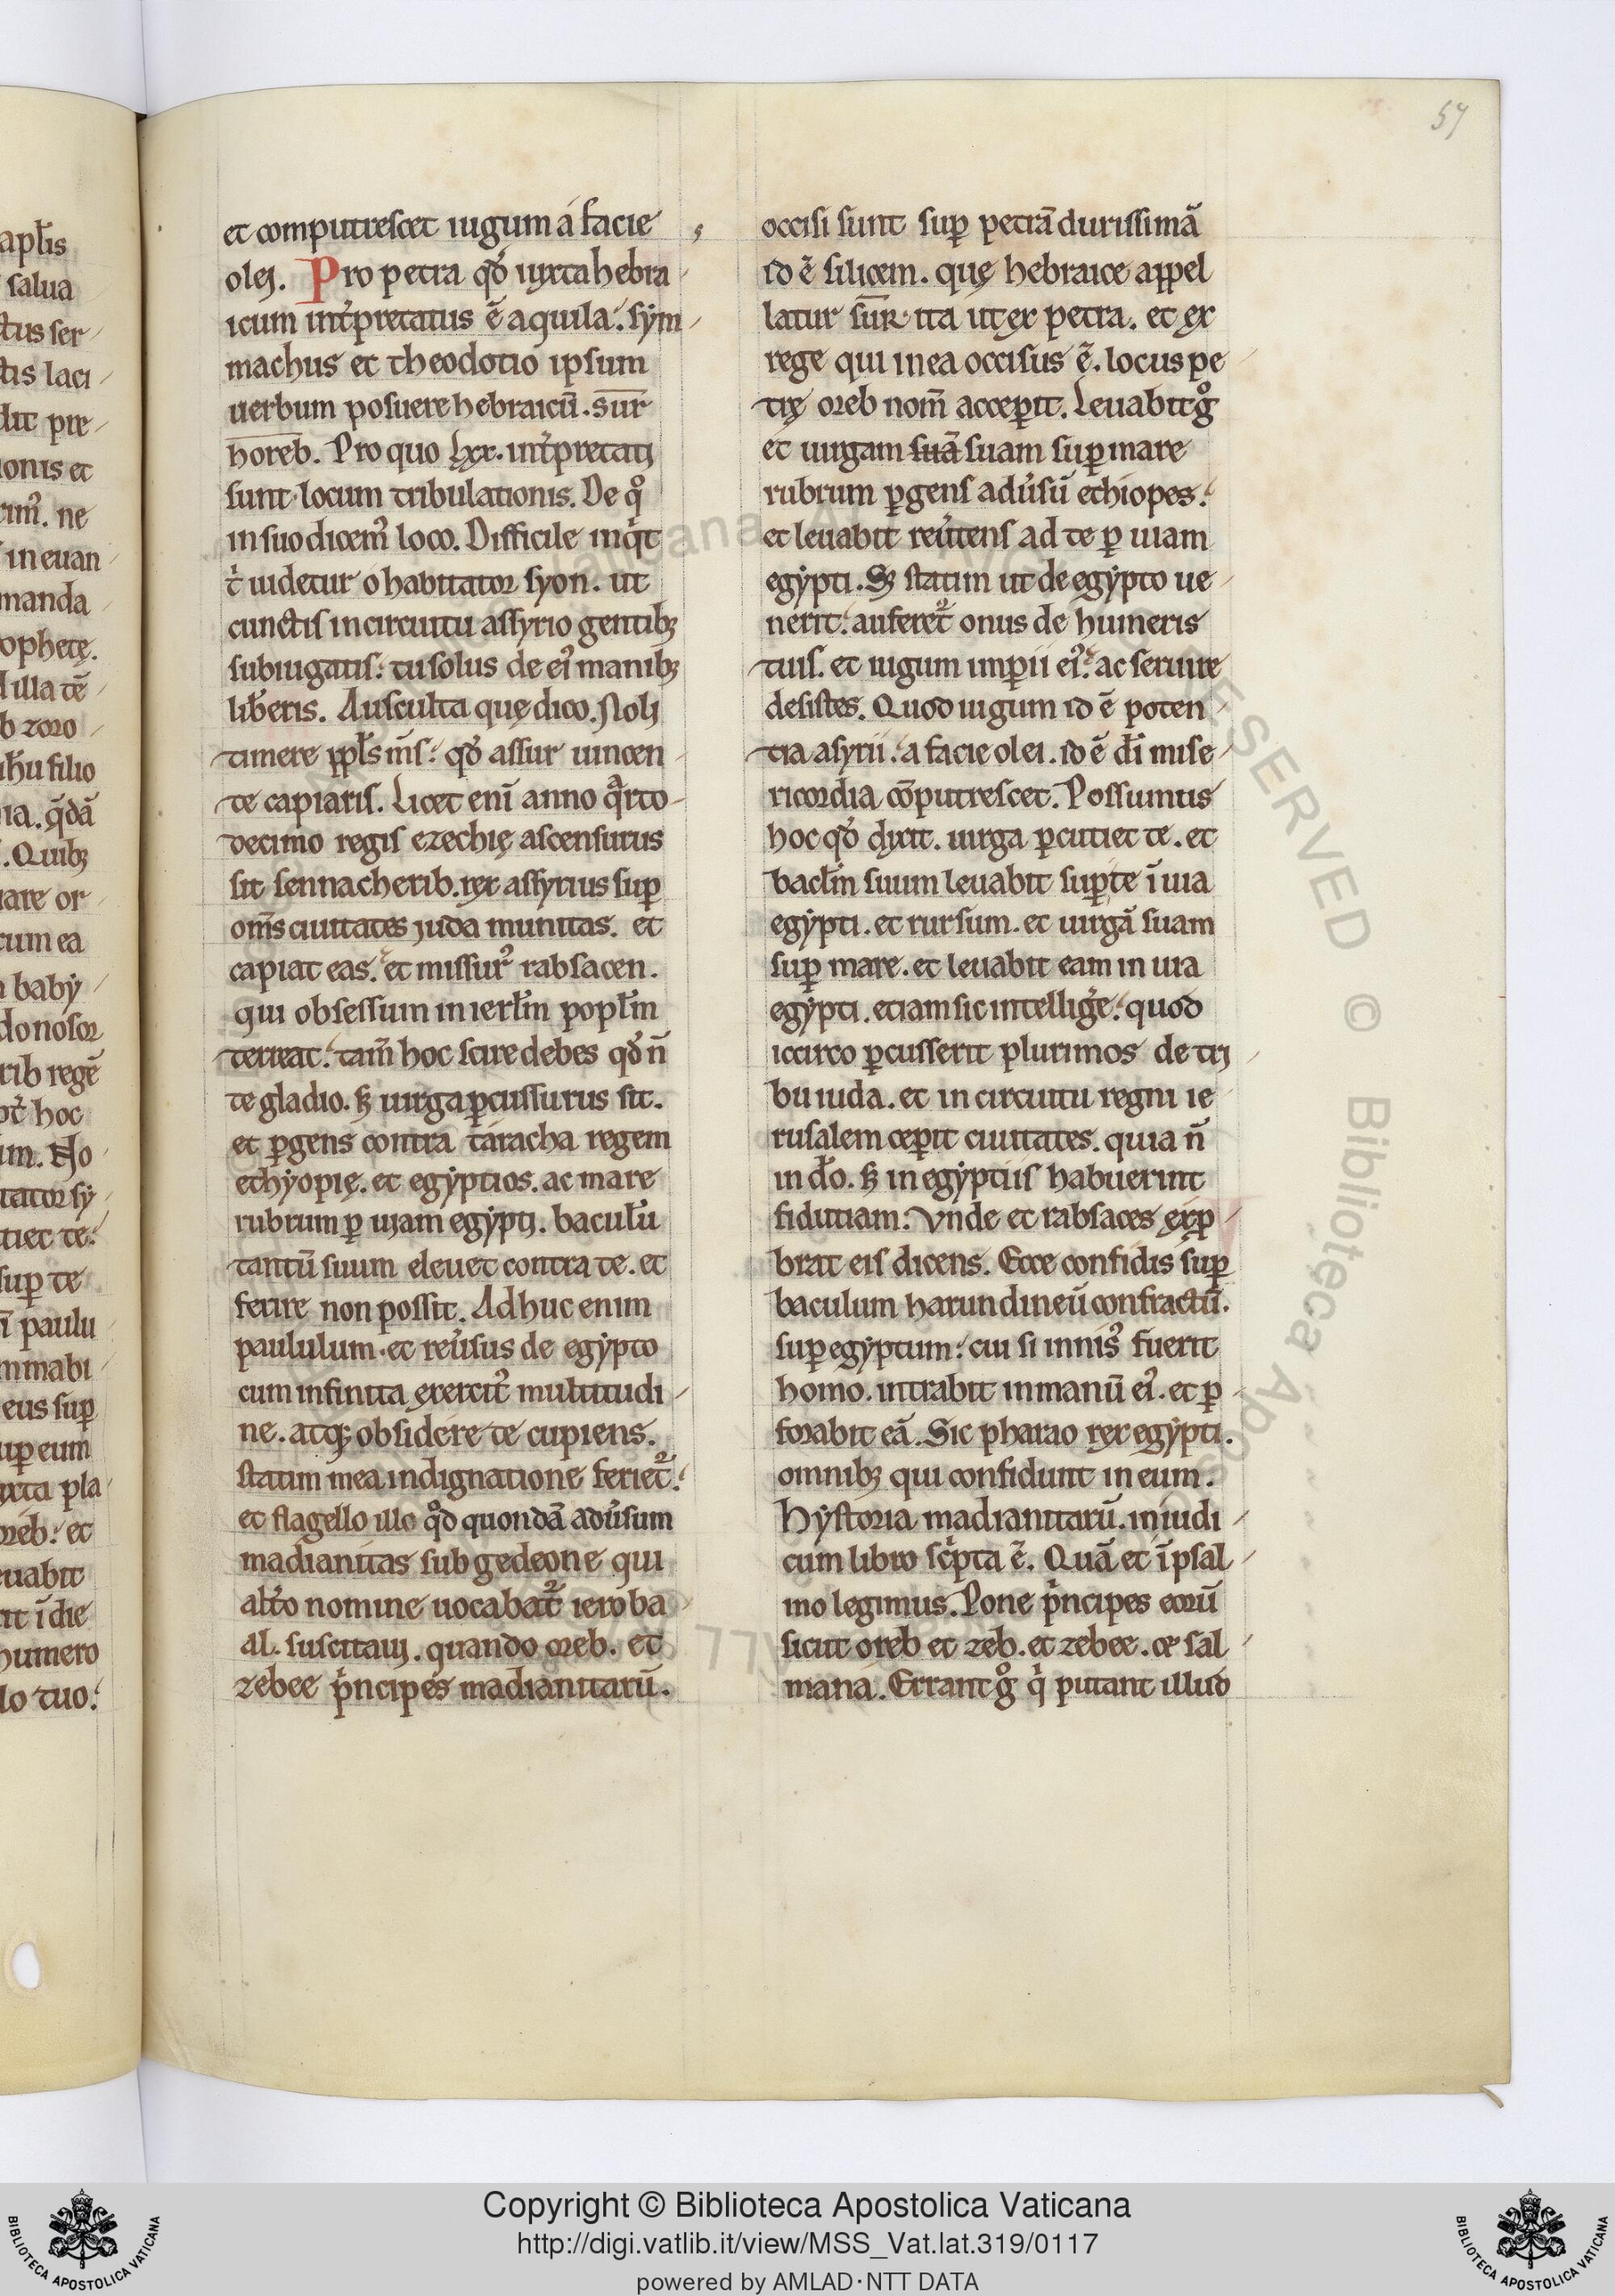 57
et computrescet iugum a facie
olej. Pro petra qđ iuxta hebra
icum int̾pretatus ē aquila. sẏm
machus et theodotio ipsum
uerbum posuere hebraicū. sur
horeb. Pro quo lxx. int̾pretatj
sunt locum tribulationis. De qͦ
in suo dicemꝰ loco. Difficile inqͥt
tͥ uidetur o habitator syon. ut
cunctis in circuitu assyrio gentibꝫ
subiugatis: tu solus de eiꝰ manibꝫ
lib̾eris. Ausculta quę dico. Nolj
timere ppl̄s m̄s: qđ assur uincen
te capiaris. Licet enī anno qᵃrto
decimo regis ezechię ascensurus
sit sennacherib. rex assyrius suꝑ
om̄s ciuitates juda munitas. et
capiat eas. et missurꝰ rabsacen.
qui obsessum in ierl̄m popl̄m
terreat. tam̄ hoc scire debes qđ n̄
te gladio. sꝫ uirga ꝑcussurus sit.
et ꝑgens contra taracha regem
ethyopię. et egẏptios. ac mare
rubrum ꝑ uiam egẏptj. bacul̄u
tantū suum eleuet contra te. et
ferire non possit. Adhuc enim
paululum. et reu̾sus de egẏpto
cum infinita exercitꝰ multitudi
ne. atqꝫ obsidere te cupiens.
statim mea indignatione feriet᷑.
et flagello illo qͦd quondā adu̾sum
madianitas sub gedeone qui
alt̾o nomine uocabat᷑ ieroba
al. suscitauj. quando oreb. et
zebee pͥncipes madianitarū.
occisi sunt suꝑ petrā durissimā
id ē silicem. quę hebraice appel
latur sur. ita ut ex petra. et ex
rege qui in ea occisus ē. locus pe
trę oreb nom̄ acceꝑit. Leuabit gͦ
et uirgam suā suam suꝑ mare
rubrum ꝑgens adu̾sū ethiopes.
et leuabit reu̾tens ad te ꝑ uiam
egẏpti. Sꝫ statim ut de egẏpto ue
nerit. auferet᷑ onus de humeris
tuis. et iugum imꝑii eiꝰ. ac seruire
desistes. Quod iugum id ē poten
tia asyrii. a facie olei. id ē dī mise
ricordia cōputrescet. Possumus
hoc qđ dixit. uirga ꝑcutiet te. et
bacl̄m suum leuabit suꝑ te ī uia
egẏpti. et rursum. et uirgā suam
suꝑ mare. et leuabit eam in uia
egẏpti. etiam sic intellig̾e. quod
iccirco ꝑcusserit plurimos de trj
bu iuda. et in circuitu regni ie
rusalem ceꝑit ciuitates. quia n̄
in dō. sꝫ in egẏptiis habuerint
fidutiam: Vnde et rabsaces exꝓ
brat eis dicens. Ecce confidis suꝑ
baculum harundineū confractū.
suꝑ egẏptum. cui si innisꝰ fuerit
homo. intrabit in manū eiꝰ. et ꝑ
forabit eā. Sic pharao rex egẏpti.
omnibꝫ qui confidunt in eum.
Hẏstoria madianitarū. in iudi
cum libro scͥpta ē. Quā et ī psal
mo legimus. Pone pͥncipes eorū
sicut oreb et zeb. et zebee. et sal
mana. Errant gͦ qͥ putant illud
Copyright © Biblioteca Apostolica Vaticana
http://digi.vatlib.it/view/MSS_Vat.lat.319/0117
powered by AMLAD·NTT DATA
BIBLIOTECA APOSTOLICA VATICANA
BIBLIOTECA APOSTOLICA VATICANA